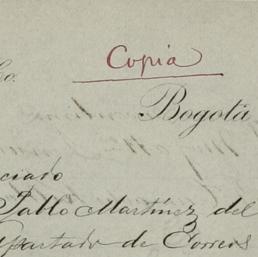 Copia
Co.
Bogotá
ciado
Pablo Martínez del
Apartado de Correos